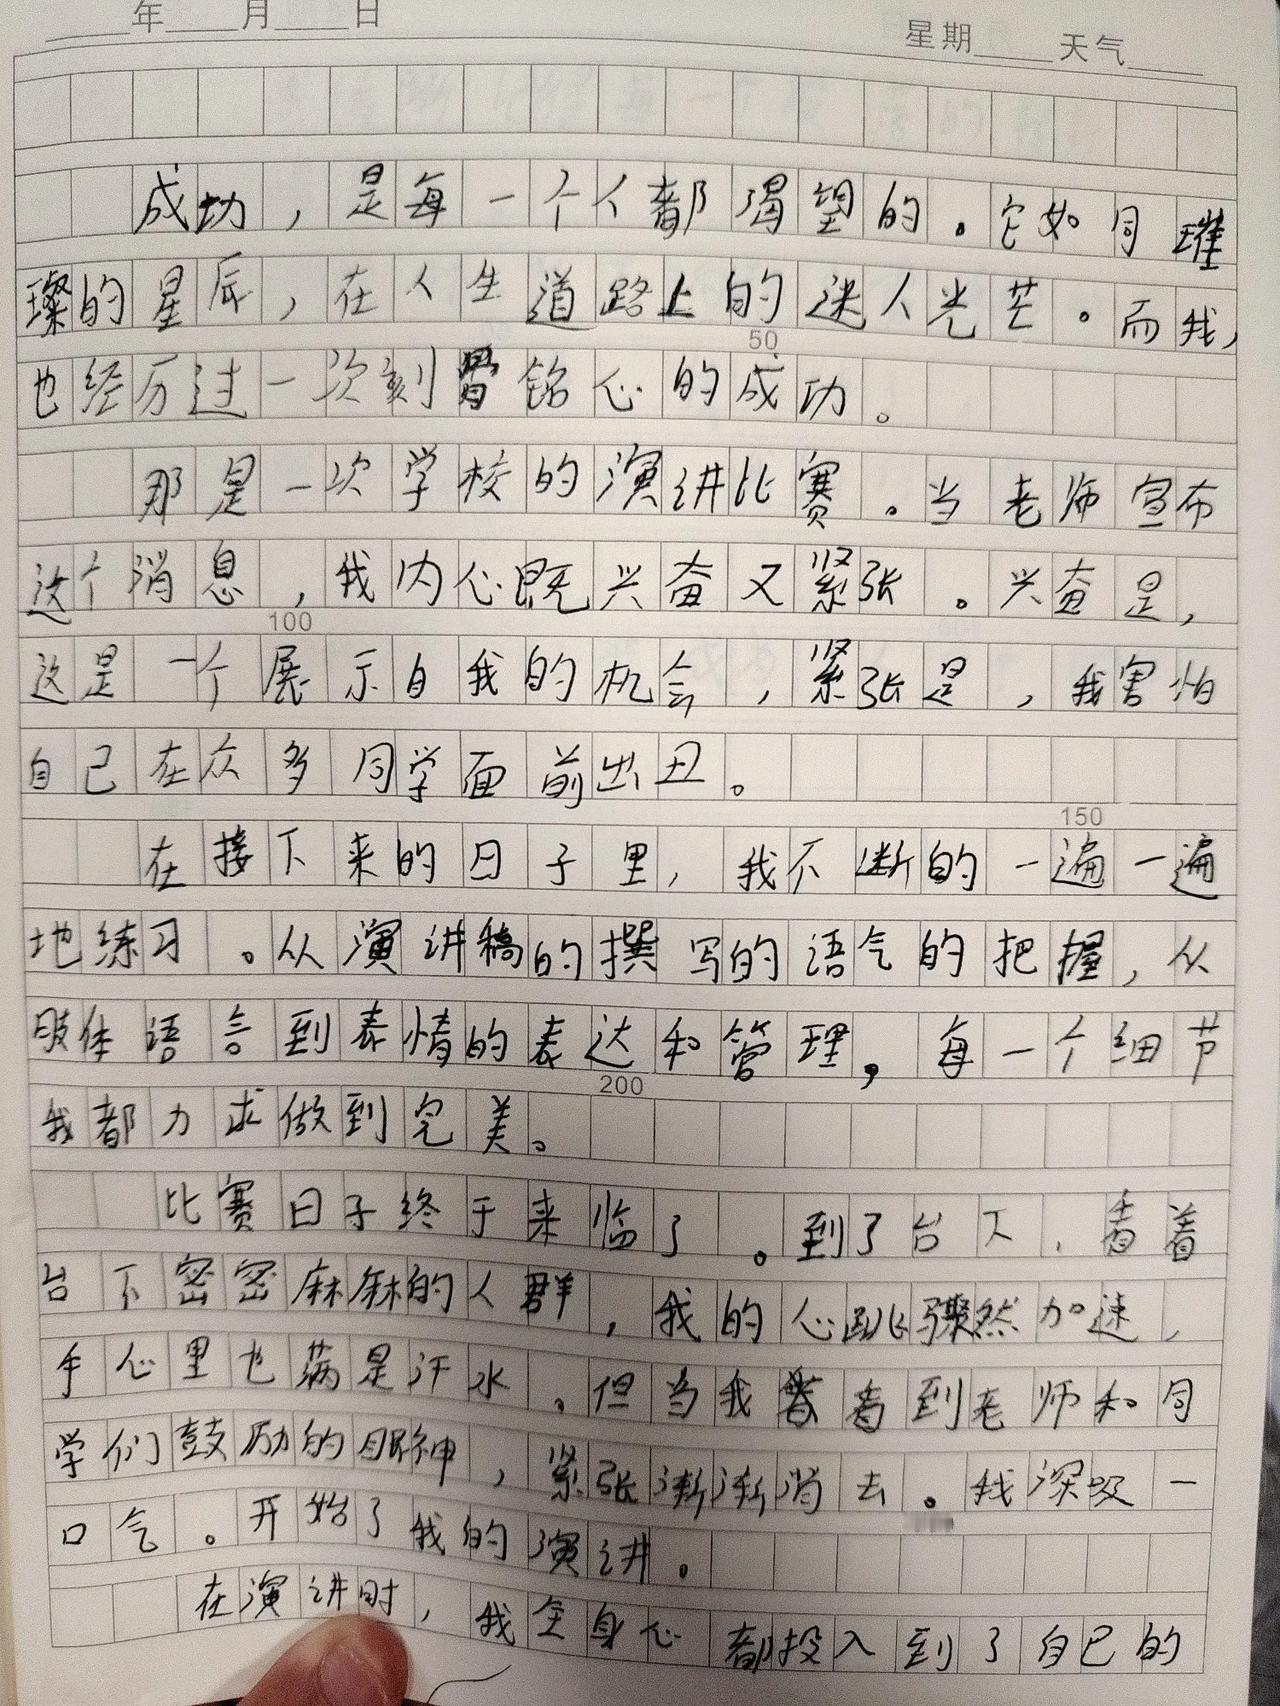 年 月 日 星期 天气
成功，是每一个人都渴望的。它如同璀
璨的星辰，在人生道路上的迷人光芒。而我，
50
也经历过一次刻骨铭心的成功。
那是一次学校的演讲比赛。当老师宣布
这个消息，我内心既兴奋又紧张。兴奋是，
100
这是一个展示自我的机会，紧张是，我害怕
自己在众多同学面前出丑。
150
在接下来的日子里，我不断的一遍一遍
地练习。从演讲稿的撰写的语气的把握，从
肢体语言到表情的表达和管理，每一个细节
200
我都力求做到完美。
比赛日子终于来临了。到了台下，看着
台下密密麻麻的人群，我的心跳骤然加速，
手心里也满是汗水。但当我看到老师和同
学们鼓励的眼神，紧张渐渐消去。我深吸一
口气。开始了我的演讲。
在演讲时，我全身心都投入到了自己的